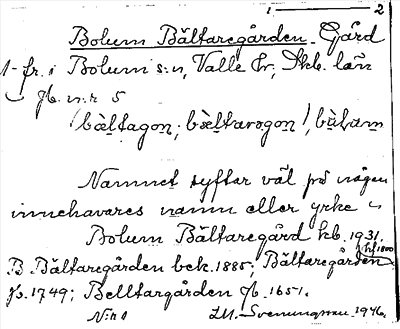 1 — 2
Bolum Bältaregården. Gård
1- fr. i Bolum s:n, Valle hr, Skb. län
Jb. n:r 5
(bæltagon; bæltaragon), bùlum
Namnet syftar väl på någon
innehavares namn eller yrke
Bolum Bältaregård kb. 1931.
B. Bältaregården bek. 1885; Bältaregården hfl 1800
Jb. 1749; Belltargården Jb. 1651.
N:r 1 I.M. Svenungsson 1946.